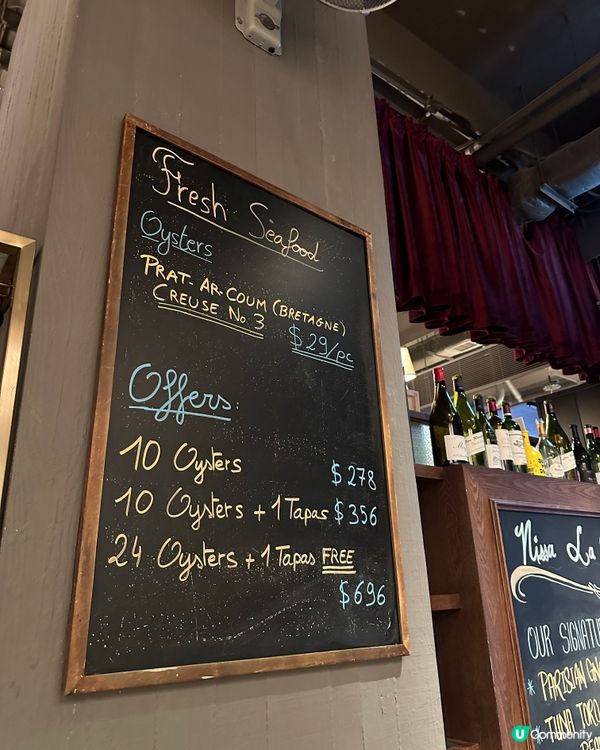 Fresh Seafood
Oysters
PRAT-AR-COUM (BRETAGNE)
CREUSE No 3
$29/pc
Offers
10 Oysters $278
10 Oysters + 1 Tapas $356
24 Oysters + 1 Tapas FREE
$696
Nissa La
OUR SIGNATU
* PARISIAN GN
* TUNA TORO
U Community